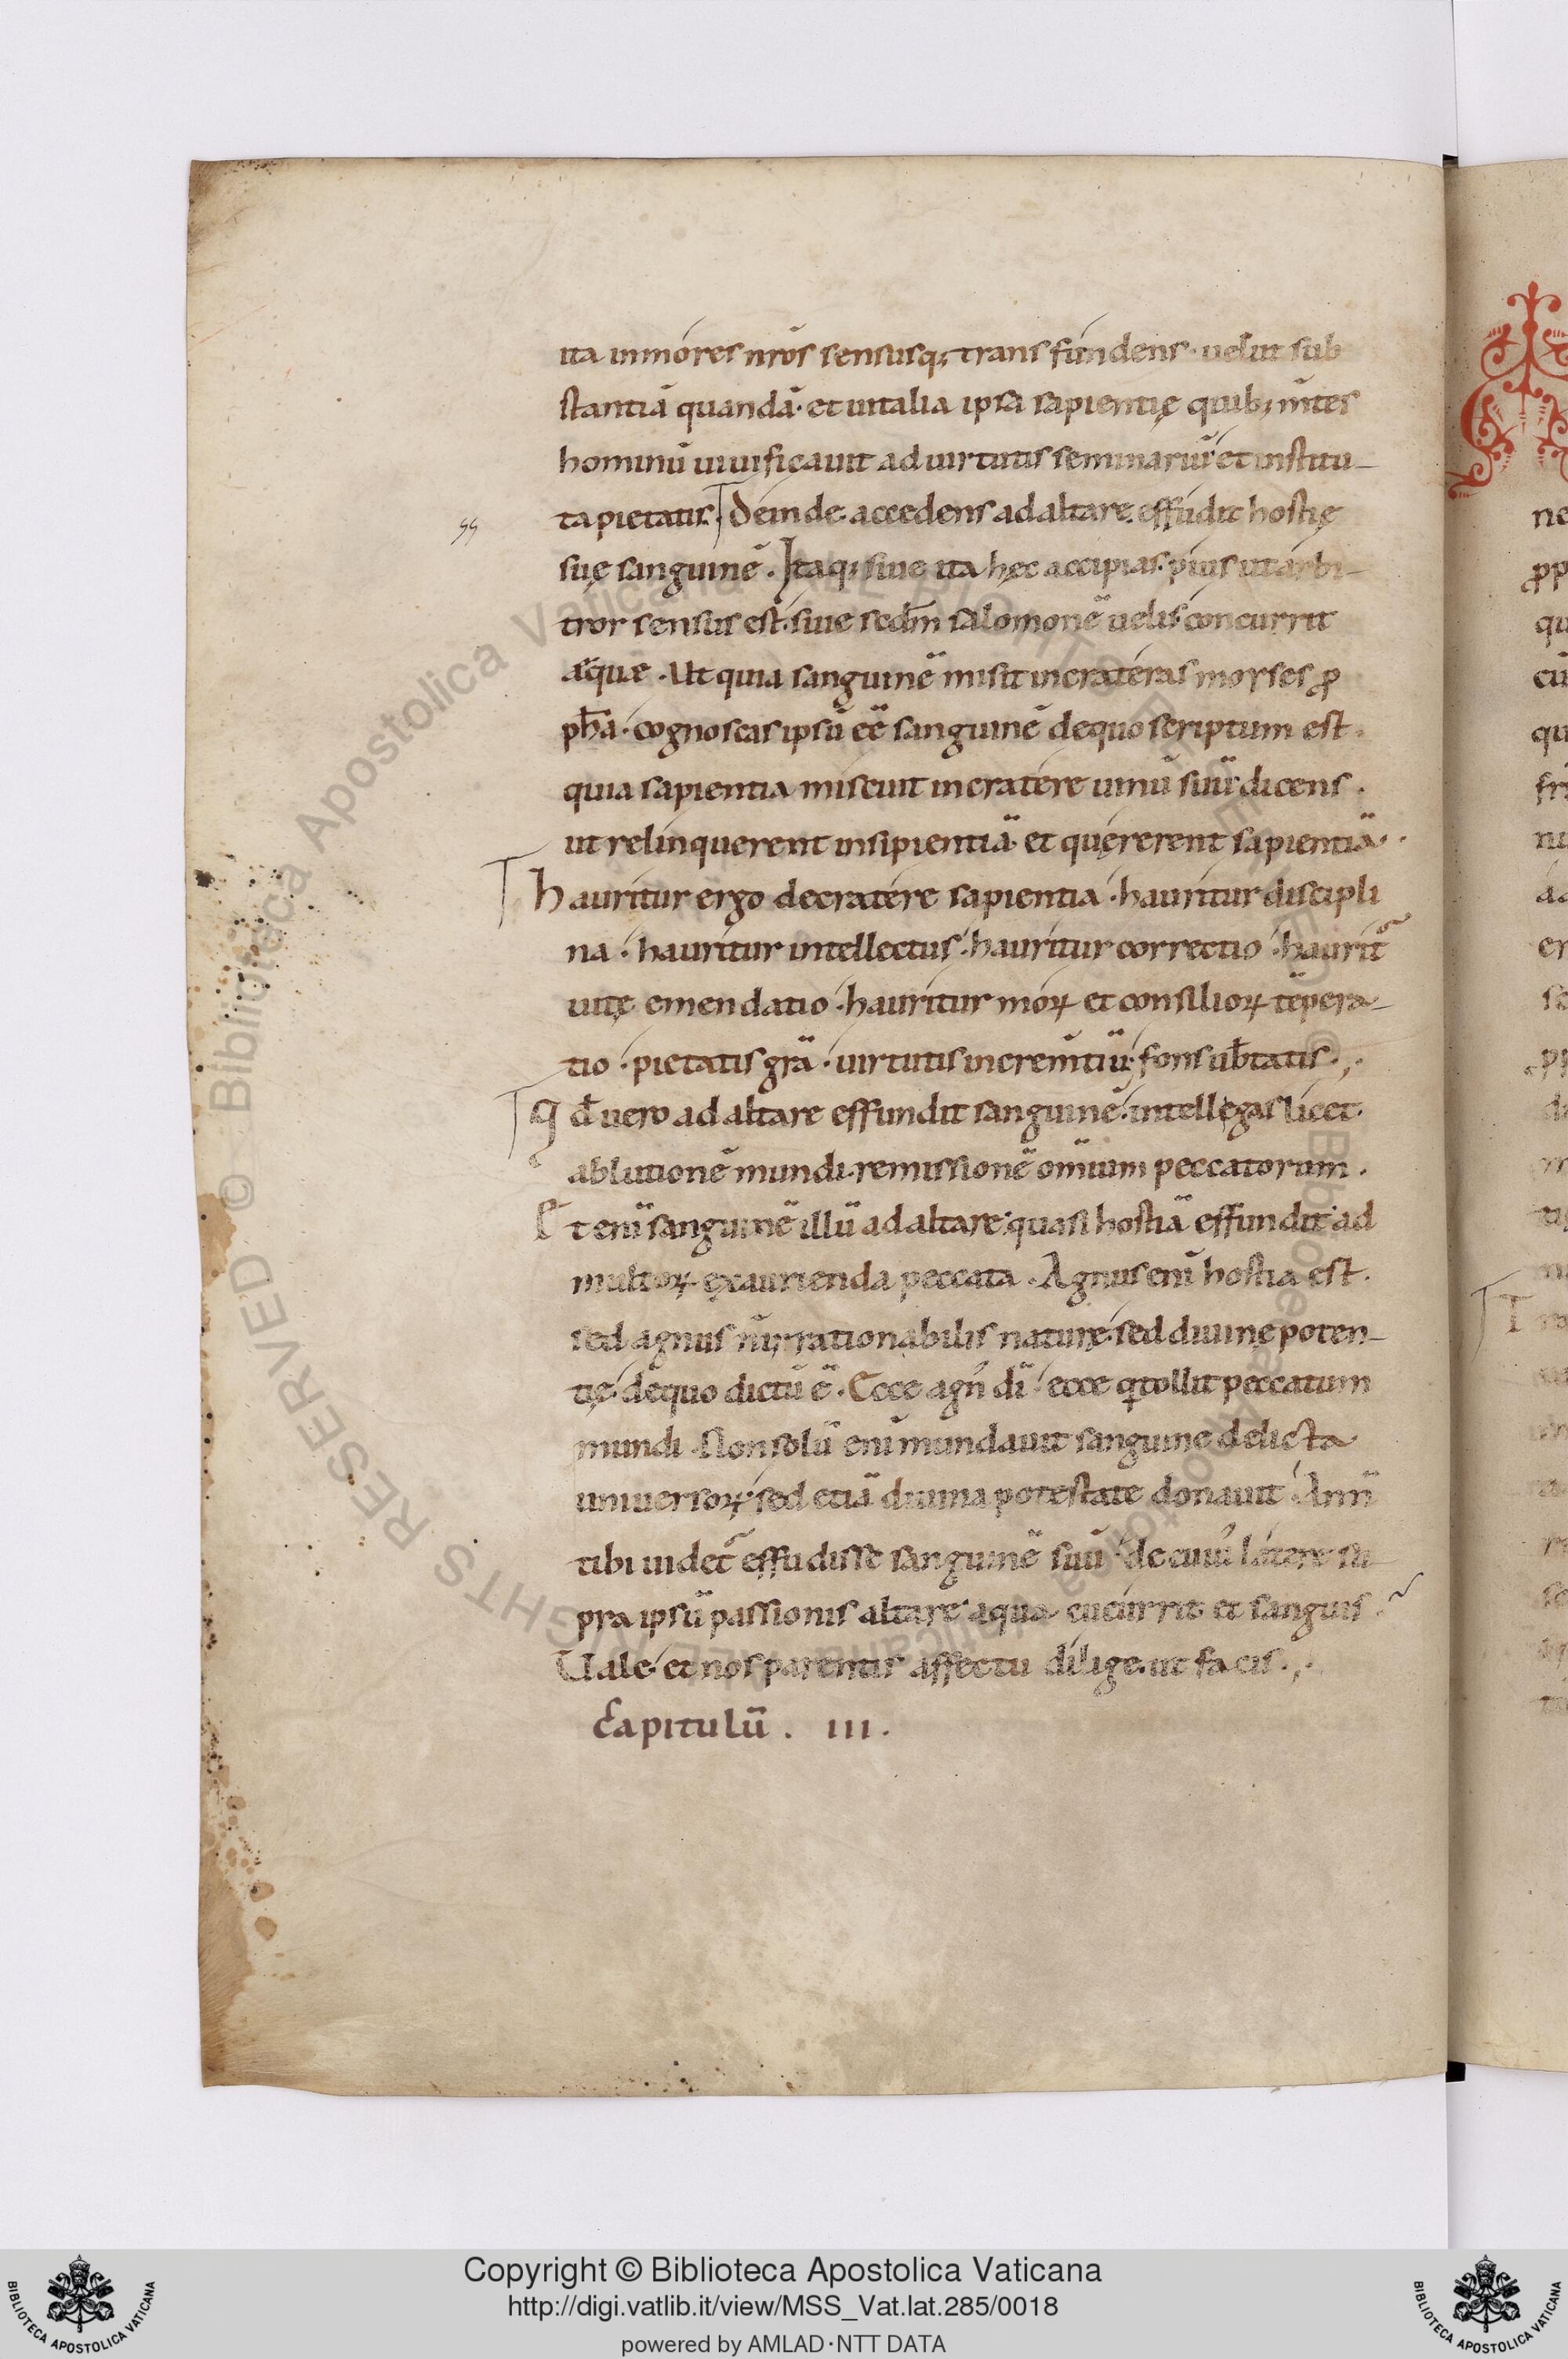 ita inmores nr̄os sensusq; transfundens · uelut sub
stantiā quandā · et uitalia ipsa sapientię quib; m̄tes
hominū uiuificauit ad uirtutis seminariū · et institu-
ta pietatis. Deinde accedens ad altare effudit hostię
suę sanguinē . Itaq; siue ita hęc accipias · pius ut arbi-
tror sensus est · siue scd̄m salomonē uelis · concurrit
ęquę . Ut quia sanguinē misit incrateras moyses ꝓ
ph̄a · cognoscas ipsū eē sanguinē dequo scriptum est .
quia sapientia miscuit incratere uinū suū dicens .
ut relinquerent insipientiā · et quęrerent sapientiā ·
Hauritur ergo decratere sapientia · hauritur discipli
na · hauritur intellectus · hauritur correctio · haurit᷑
uitę emendatio · hauritur moꝝ et consilioꝝ tēpera-
tio · pietatis grā · uirtutis increm̄tū · fons ub̄tatis ·,·
Qd̄ uero ad altare effundit sanguinē · intellegas licet
ablutionē mundi · remissionē om̄ium peccatorum .
Et enī sanguinē illū ad altare quasi hostiā effundit · ad
multoꝝ exaurienda peccata . Agnus enī hostia est .
sed agnus n̄ irrationabilis naturę · sed diuinę poten-
tię · dequo dictū ē . Ecce agn̄ dī · ecce q̇ tollit peccatum
mundi . Non solū enī mundauit sanguine delicta
uniuersoꝝ · sed etiā diuina potestate donauit . Ann̄
tibi uidet᷑ effudisse sanguinē suū · de cuiȷ latere su-
pra ipsū passionis altare aqua cucurrit et sanguis .
Uale · et nos parentis affectu dilige · ut facis ·,·
Capitulū . III .
ss
Copyright © Biblioteca Apostolica Vaticana
http://digi.vatlib.it/view/MSS_Vat.lat.285/0018
powered by AMLAD·NTT DATA
BIBLIOTECA APOSTOLICA VATICANA
BIBLIOTECA APOSTOLICA VATICANA